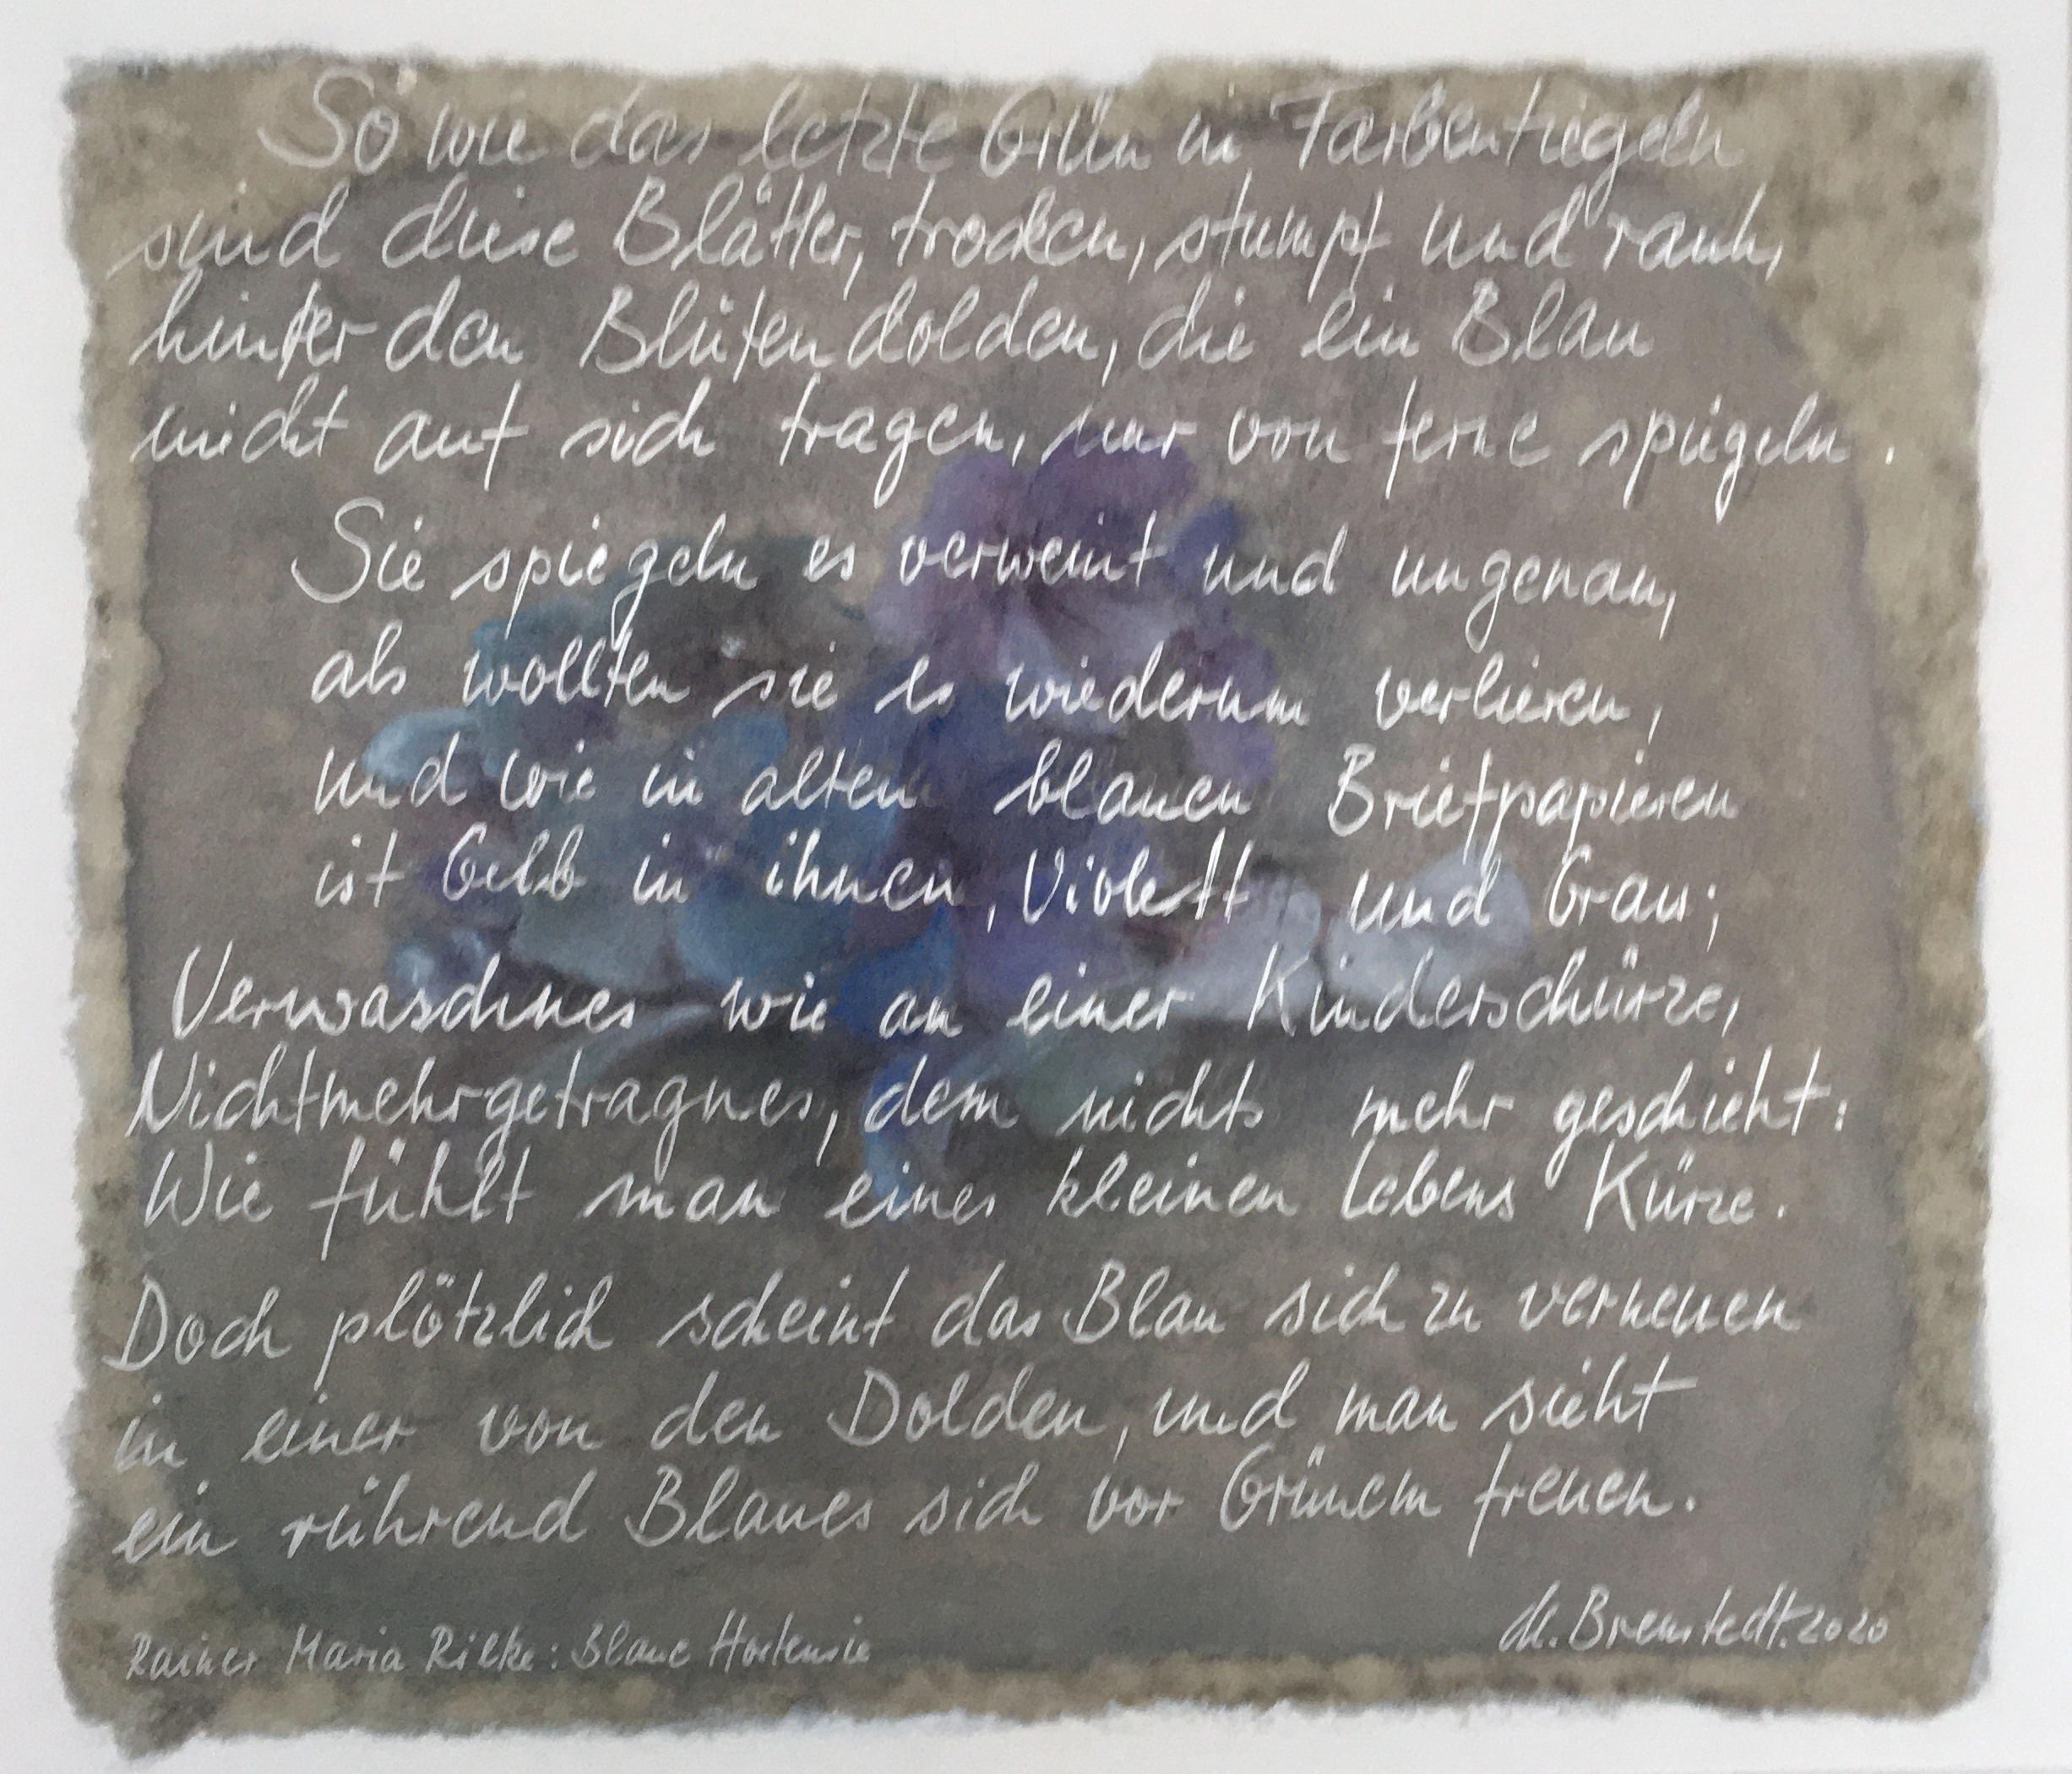 So wie das letzte Grün in Farbentiegeln
sind diese Blätter, trocken, stumpf und rauh,
hinter den Blütendolden, die ein Blau
nicht auf sich tragen, nur von ferne spiegeln.
Sie spiegeln es verweint und ungenau,
als wollten sie es wiederum verlieren,
und wie in alten blauen Briefpapieren
ist Gelb in ihnen, Violett und Grau;
Verwaschnes wie an einer Kinderschürze,
Nichtmehrgetragnes, dem nichts mehr geschieht:
Wie fühlt man eines kleinen Lebens Kürze.
Doch plötzlich scheint das Blau sich zu verneuen
in einer von den Dolden, und man sieht
ein rührend Blaues sich vor Grünem freuen.
Rainer Maria Rilke: Blaue Hortensie
M. Bremstedt. 2020